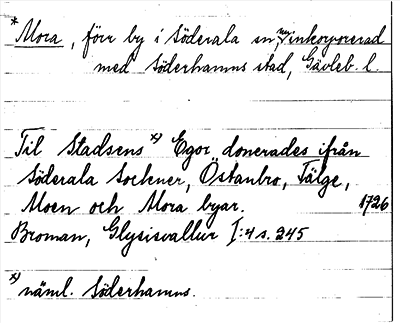 *Mora, förr by i Söderala sn, nu inkorporerad
med Söderhamns stad, Gävleb. l.
Til Stadsens x) Egor donerades ifrån
Söderala Sockner, Östanbro, Tälge,
Moen och Mora byar. 1726
Broman, Glysisvallur I:4 s. 245
x) näml. Söderhamns.